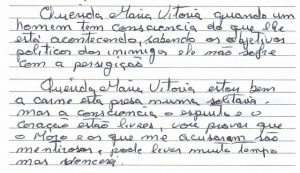 Querida Maria Vitoria quando um
homem tem consciencia do que lhe
está acontecendo, sabendo os objetivos
politicos dos inimigos ele não sofre
com a persiguição
Querida Maria Vitoria estou bem
a carne esta presa numa solitaria
mas a consciencia, o espirito e o
coração estão livres, vou provar que
o Moro e os que me acusaram são
mentirosos, pode levar muito tempo
mas vencerei